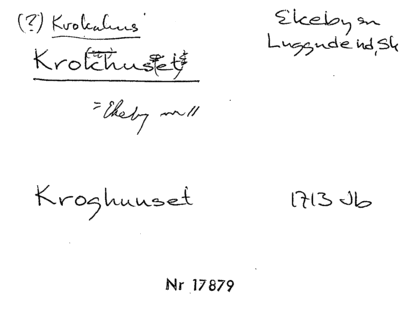 (?) Krokahus
Ekeby sn
Luggude hd, Sk
Krokhuset
= Ekeby nr 11
Kroghuuset 1713 Jb
Nr 17879